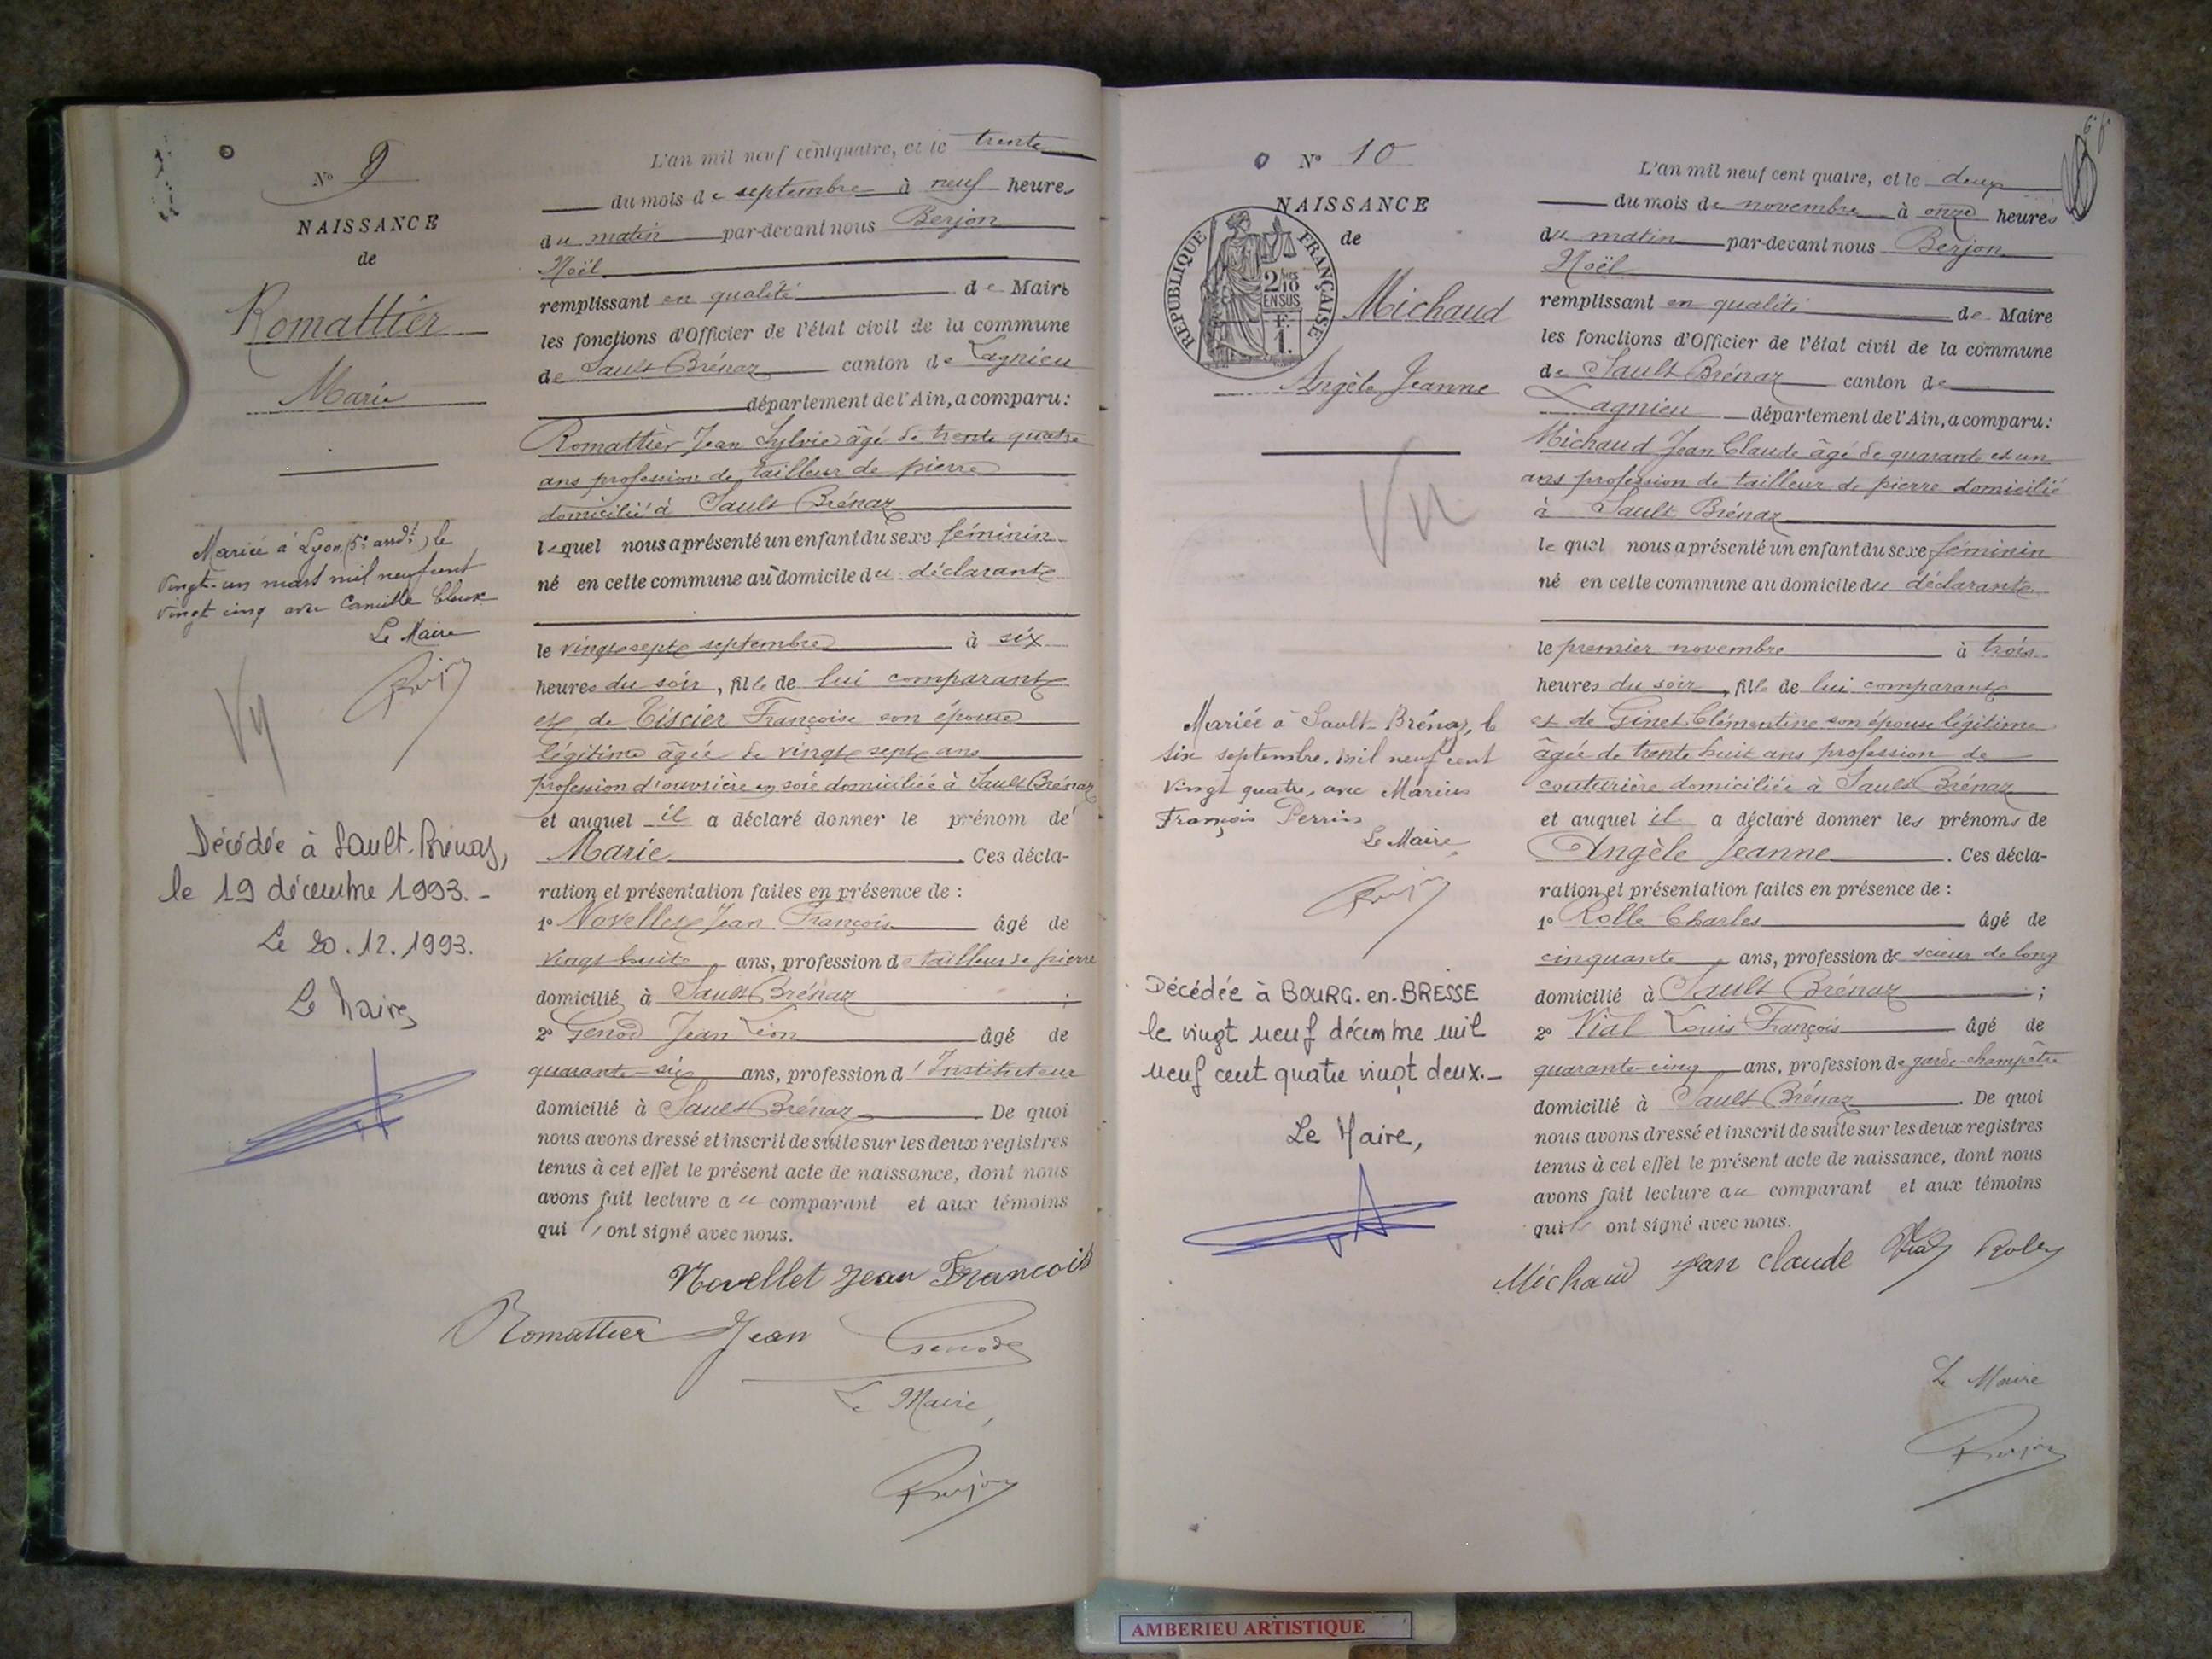 N° 9
NAISSANCE
de
Romattier
Marie
Mariée à Lyon (5e arrdt), le
vingt-un mars mil neuf cent
vingt cinq avec Camille
Le Maire
Vu
Décédée à Sault-Brénaz,
le 19 décembre 1993.-
Le 20.12.1993.
Le Maire
L'an mil neuf cent quatre, et le trente
du mois de septembre à neuf heures
du matin par-devant nous Berjon
Noël
remplissant en qualité de Maire
les fonctions d'Officier de l'état civil de la commune
de Sault Brénaz canton de Lagnieu
département de l'Ain, a comparu:
Romattier Jean Sylvie âgé de trente quatre
ans profession de tailleur de pierre
domicilié à Sault Brénaz
lequel nous a présenté un enfant du sexe féminin
né en cette commune au domicile du déclarant
le vingt sept septembre à six
heures du soir, fille de lui comparant
et de Tiscier Françoise son épouse
légitime âgée de vingt sept ans
profession d'ouvrière en soie domiciliée à Sault Brénaz
et auquel il a déclaré donner le prénom de
Marie. Ces décla-
ration et présentation faites en présence de :
1° Novellet Jean François âgé de
vingt huit ans, profession de tailleur de pierre
domicilié à Sault Brénaz ;
2° Genod Jean Léon âgé de
quarante-six ans, profession d'Instituteur
domicilié à Sault Brénaz. De quoi
nous avons dressé et inscrit de suite sur les deux registres
tenus à cet effet le présent acte de naissance, dont nous
avons fait lecture au comparant et aux témoins
qui ont signé avec nous.
Novellet Jean Francois
Romattier Jean Genod
Le Maire,
Berjon
N° 10
NAISSANCE
de
REPUBLIQUE FRANÇAISE
2/10
EN SUS
1.
Michaud
Angèle Jeanne
Vu
Mariée à Sault-Brénaz, le
six septembre mil neuf cent
vingt quatre, avec Marius
François Perrin
Le Maire
Décédée à BOURG-en-BRESSE
le vingt neuf décembre mil
neuf cent quatre vingt deux.-
Le Maire,
L'an mil neuf cent quatre, et le deux
du mois de novembre à onze heures
du matin par-devant nous Berjon
Noël
remplissant en qualité de Maire
les fonctions d'Officier de l'état civil de la commune
de Sault Brénaz canton de
Lagnieu département de l'Ain, a comparu:
Michaud Jean Claude âgé de quarante et un
ans profession de tailleur de pierre domicilié
à Sault Brénaz
le quel nous a présenté un enfant du sexe féminin
né en cette commune au domicile du déclarant
le premier novembre à trois
heures du soir, fille de lui comparant
et de Ginet Clémentine son épouse légitime
âgée de trente huit ans profession de
couturière domiciliée à Sault Brénaz
et auquel il a déclaré donner les prénoms de
Angèle Jeanne. Ces décla-
ration et présentation faites en présence de :
1° Rolle Charles âgé de
cinquante ans, profession de scieur de long
domicilié à Sault Brénaz ;
2° Vial Louis François âgé de
quarante-cinq ans, profession de garde-champêtre
domicilié à Sault Brénaz. De quoi
nous avons dressé et inscrit de suite sur les deux registres
tenus à cet effet le présent acte de naissance, dont nous
avons fait lecture au comparant et aux témoins
qui ont signé avec nous.
Michaud Jean Claude Vial
Le Maire
Berjon
AMBERIEU ARTISTIQUE